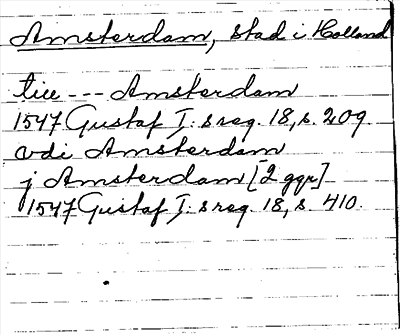 Amsterdam, stad i Holland
till --- Amsterdam
1547 Gustaf I: s reg. 18, s. 209.
vdi Amsterdam
j Amsterdam [2 ggr]
1547 Gustaf I: s reg. 18, s. 410.